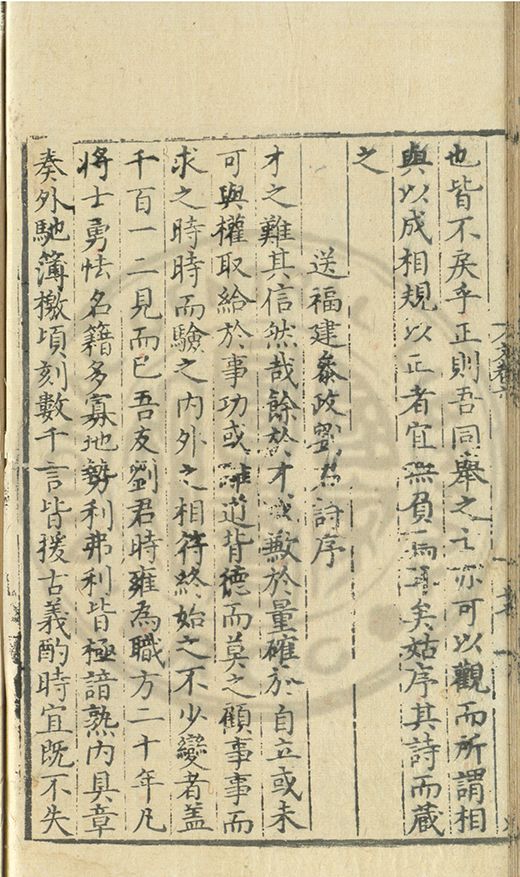 也皆不戾乎正則吾同舉之亦可以觀而所謂相
與以成相規以正者宜無負焉矣姑序其詩而藏
之
送福建叅政劉君詩序
才之難其信然哉餘於才或歉於量確於自立或未
可與權取給於事功或離道背德而莫之顧事事而
求之時時而驗之內外之相符終始之不少變者盖
千百一二見而已吾友劉君時雍為職方二十年凡
將士勇怯名籍多寡地勢利弗利皆極諳熟內具章
奏外馳簿檄頃刻數千言皆援古義酌時宜既不失